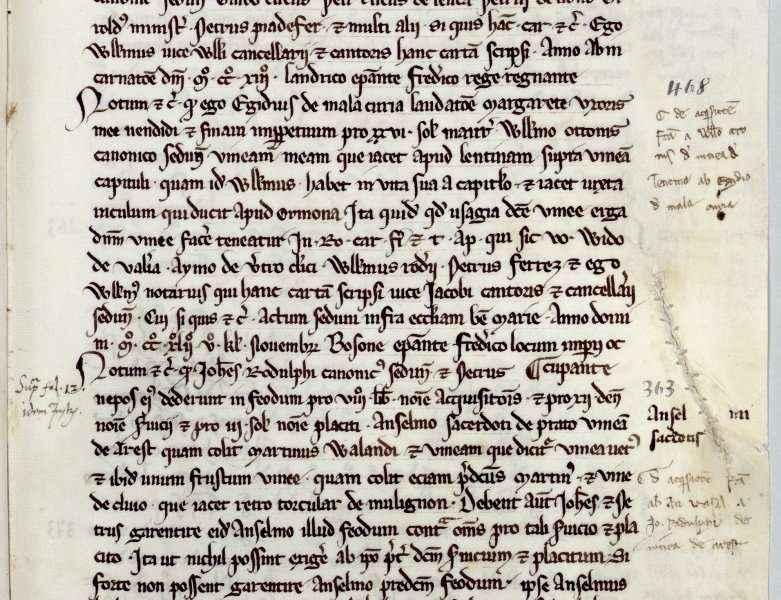 told᷒ minist᷒. Petrus pradefer. ⁊ multi alii. si quis hāc car ⁊ c̄. Ego
Willm̄us uice Willi cancellarij ⁊ cantoris hanc cartā scripsi. Anno ab in
carnatōe dn̄i. mº. ccº. xiiii. landrico epāante fred'ico rege regnante
Notum ⁊ c̄. q̄ ego Egidius de mala curia laudatōe margarete vxoris
mee uendidi ⁊ finaui imppetuum pro xxvi. sol᷒ maur᷒. Willmo ottonis
canonico sedun̄. vineam meam que iacet apud lentinam supra vineā
capituli. quam id᷒ Willmus. habet in vita sua a capitlo. ⁊ iacet iuxta
uiculum qui ducit apud ormona Ita quid᷒. qd᷒ usagia dc̄e vinee erga
dn̄m vinee fac̄e teneatur. In. Ro. car. fi᷒. ⁊ t. Ap. qui sic vo. Wido
de val'ia. Aymo de v̄tro cl'ici. Willmus rod'ij. Petrus ferrez ⁊ ego
Willm̄ᷤ notarius qui hanc cartā scripsi uice Jacobi cantoris ⁊ cancellarij
sedun̄. Cui si quis ⁊ c̄. Actum seduni infra eccl'iam bē marie. Anno domi
ni. mº. ccº. xliiº. vº. kl᷒. Nouembr᷒. Bosone epāante fredico locum impij oc
Notum ⁊ c̄. q̄ Joh̄es Rodulphi canonicᷤ sedun̄ ⁊ petrus ¶Cupante
nepos eiᷤ dederunt in feodum pro viij. lib᷒. noīe Acquisitōnis. ⁊ pro xij den̄
noīe s'uicij ⁊ pro iij. sol᷒. noīe placiti. Anselmo sacerdoti de prato vineā
de Arest quam colit martinus Walandi. ⁊ vineam que dicit᷒ vinea uetᷤ
⁊ ibid᷒ unum frustum vinee. quam colit eciam p̄dc̄us martinᷤ. ⁊ vine
de cliuo. que iacet retro torcular de mulignon. Debent aut̄ Joh̄es ⁊ Pe
trus garentire eid᷒ Anselmo illud feodum cont̄ om̄s pro tali s'uicio ⁊ pla
cito. Ita ut nichil possint erig̅e ab ip̄o p̄t᷒ dcm̄ s'uicium ⁊ placitum. Si
forte non possent garentire Anselmo predcm̄ feodum. ipse Anselmus
468
de acqsitōe
fc̄a a Willo otto
nis d᷒ vinea d᷒
lentina ab egidio
d᷒ mala curia
Supᷓ fol. 12.
363
Ansel iiii
sacdotis
de acqsitōe fc̄a
Jo. Radulphi de
vinea de arest